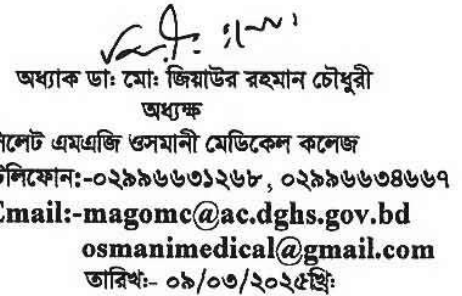 অধ্যাক ডাঃ মোঃ জিয়াউর রহমান চৌধুরী
অধ্যক্ষ
সিলেট এমএজি ওসমানী মেডিকেল কলেজ
টেলিফোন:-০২৯৯৬৬৩১২৬৮, ০২৯৯৬৬৩৪৬৬৭
Email:-magomc@ac.dghs.gov.bd
osmanimedical@gmail.com
তারিখঃ- ০৯/০৩/২০২৫খ্রিঃ